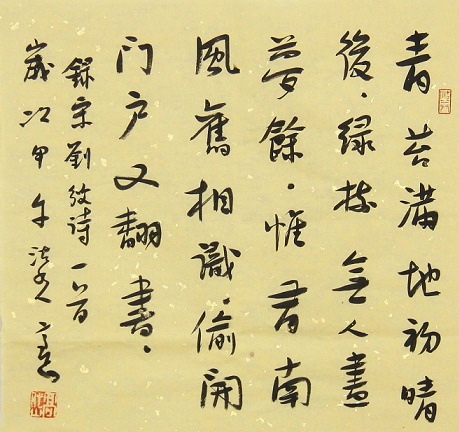 青苔滿地初晴
後、绿樹無人晝
夢餘、惟有南
風舊相識、偷開
门户又翻書、
錄宋劉攽诗一首
歲次甲午